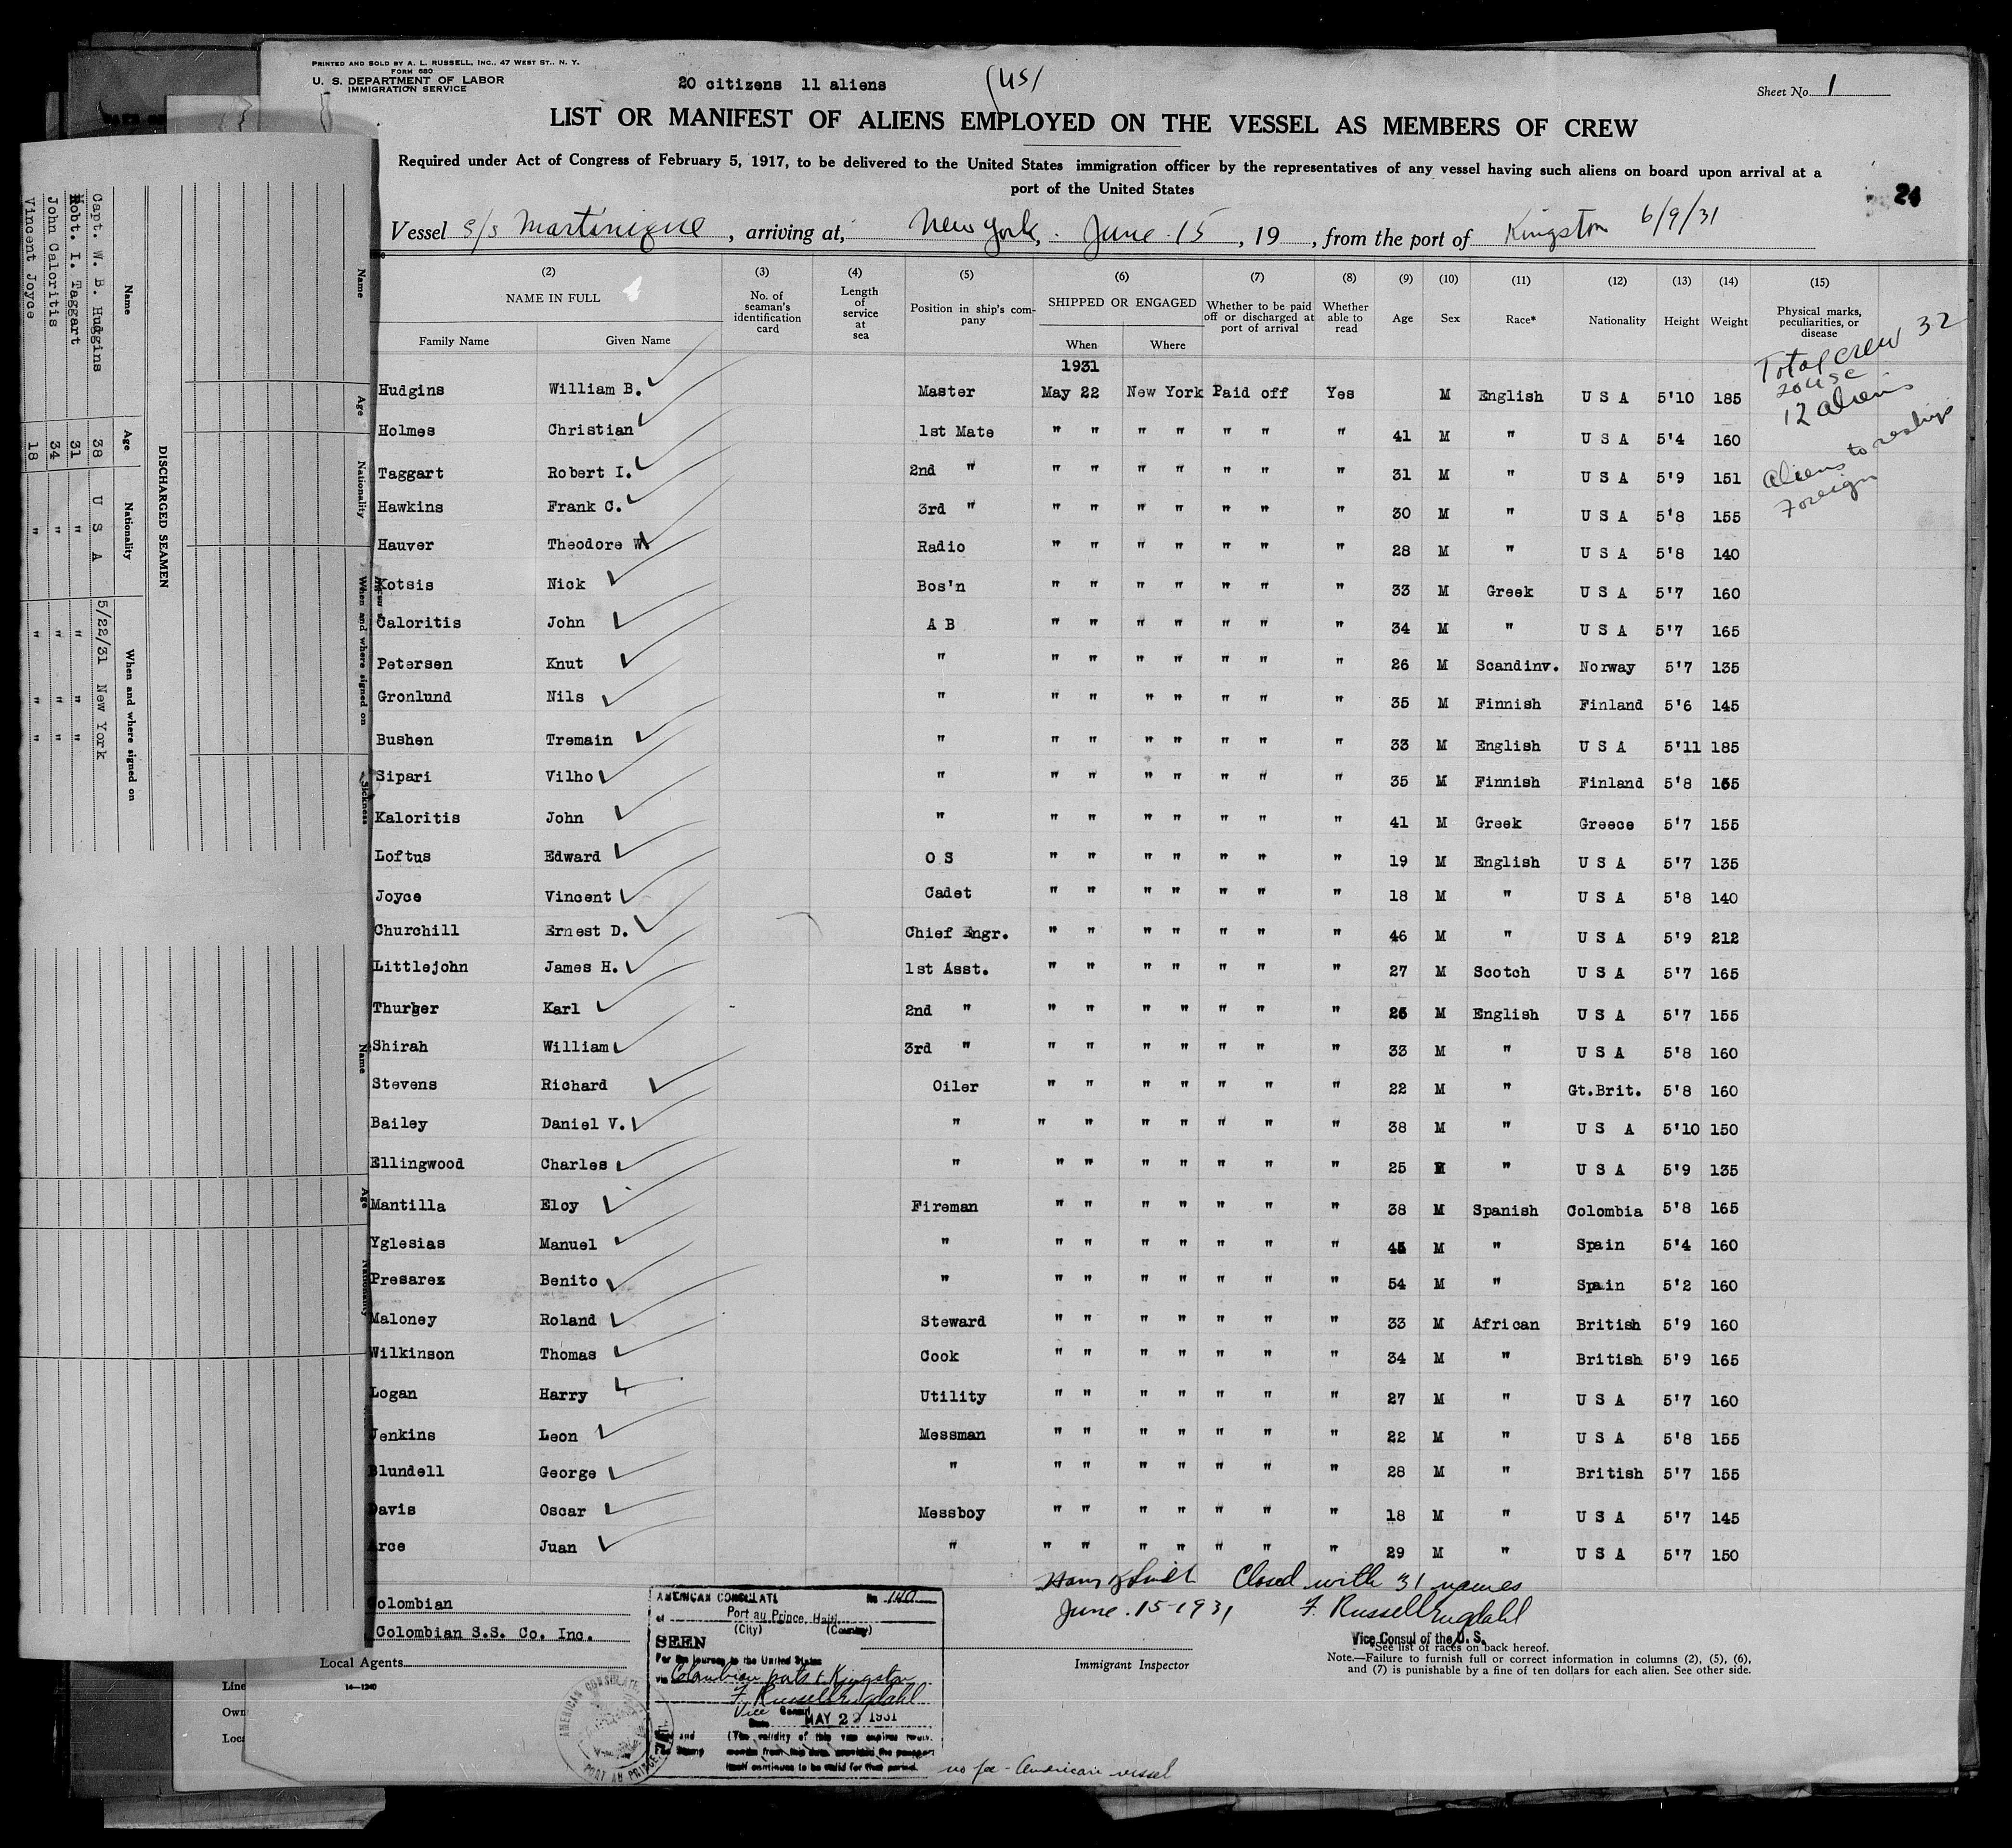 PRINTED AND SOLD BY A. L. RUSSELL, INC., 47 WEST ST., N. Y.
FORM 680
U. S. DEPARTMENT OF LABOR
IMMIGRATION SERVICE
20 citizens 11 aliens
(US)
Sheet No. 1
LIST OR MANIFEST OF ALIENS EMPLOYED ON THE VESSEL AS MEMBERS OF CREW
Required under Act of Congress of February 5, 1917, to be delivered to the United States immigration officer by the representatives of any vessel having such aliens on board upon arrival at a
port of the United States
24
Vessel S/s Martinique, arriving at, New York, June 15, 19, from the port of Kingston 6/9/31
(2) (3) (4) (5) (6) (7) (8) (9) (10) (11) (12) (13) (14) (15)
NAME IN FULL
Family Name Given Name
No. of seaman's identification card
Length of service at sea
Position in ship's company
SHIPPED OR ENGAGED
When Where
Whether to be paid off or discharged at port of arrival
Whether able to read
Age
Sex
Race*
Nationality
Height
Weight
Physical marks, peculiarities, or disease
Total crew 32
20 USC
12 aliens
Aliens to reship
Foreign
1931
Hudgins William B. Master May 22 New York Paid off Yes M English U S A 5'10 185
Holmes Christian 1st Mate " " " " " " " 41 M " U S A 5'4 160
Taggart Robert I. 2nd " " " " " " " " 31 M " U S A 5'9 151
Hawkins Frank C. 3rd " " " " " " " " 30 M " U S A 5'8 155
Hauver Theodore W. Radio " " " " " " " 28 M " U S A 5'8 140
Kotsis Nick Bos'n " " " " " " " 33 M Greek U S A 5'7 160
Caloritis John A B " " " " " " " 34 M " U S A 5'7 165
Petersen Knut " " " " " " " " 26 M Scandinv. Norway 5'7 135
Gronlund Nils " " " " " " " " 35 M Finnish Finland 5'6 145
Bushen Tremain " " " " " " " " 33 M English U S A 5'11 185
Sipari Vilho " " " " " " " " 35 M Finnish Finland 5'8 155
Kaloritis John " " " " " " " " 41 M Greek Greece 5'7 155
Loftus Edward O S " " " " " " " 19 M English U S A 5'7 135
Joyce Vincent Cadet " " " " " " " 18 M " U S A 5'8 140
Churchill Ernest D. Chief Engr. " " " " " " " 46 M " U S A 5'9 212
Littlejohn James H. 1st Asst. " " " " " " " 27 M Scotch U S A 5'7 165
Thurber Karl 2nd " " " " " " " " 25 M English U S A 5'7 155
Shirah William 3rd " " " " " " " " 33 M " U S A 5'8 160
Stevens Richard Oiler " " " " " " " 22 M " Gt.Brit. 5'8 160
Bailey Daniel V. " " " " " " " " 38 M " US A 5'10 150
Ellingwood Charles " " " " " " " " 25 M " U S A 5'9 135
Mantilla Eloy Fireman " " " " " " " 38 M Spanish Colombia 5'8 165
Yglesias Manuel " " " " " " " " 45 M " Spain 5'4 160
Presares Benito " " " " " " " " 54 M " Spain 5'2 160
Maloney Roland Steward " " " " " " " 33 M African British 5'9 160
Wilkinson Thomas Cook " " " " " " " 34 M " British 5'9 165
Logan Harry Utility " " " " " " " 27 M " U S A 5'7 160
Jenkins Leon Messman " " " " " " " 22 M " U S A 5'8 155
Blundell George " " " " " " " " 28 M " British 5'7 155
Davis Oscar Messboy " " " " " " " 18 M " U S A 5'7 145
Arce Juan " " " " " " " " 29 M " U S A 5'7 150
Closed with 31 names
June. 15-1931
F. Russell Engdahl
Vice Consul of the U. S.
Colombian
Colombian S.S. Co. Inc.
Local Agents
14—1240
Immigrant Inspector
*See list of races on back hereof.
Note.—Failure to furnish full or correct information in columns (2), (5), (6),
and (7) is punishable by a fine of ten dollars for each alien. See other side.
AMERICAN CONSULATE No 140
at Port au Prince Haiti
(City) (Country)
SEEN
For the journey to the United States
via Colombian ports & Kingston
F. Russell Engdahl
Vice Consul
Date MAY 29 1931
(The validity of this visa expires twelve
months from this date provided the passport
itself continues to be valid for that period.
AMERICAN CONSULATE,
PORT AU PRINCE
no fee - American vessel
Line
Own
Loca
DISCHARGED SEAMEN
Name Age Nationality When and where signed on
Capt. W. B. Hudgins 38 U S A 5/22/31 New York
Robt. I. Taggart 31 " " "
John Caloritis 34 " " "
Vincent Joyce 18 " " "
Name Age Nationality When and where signed on Sickness
Name Age Nationality